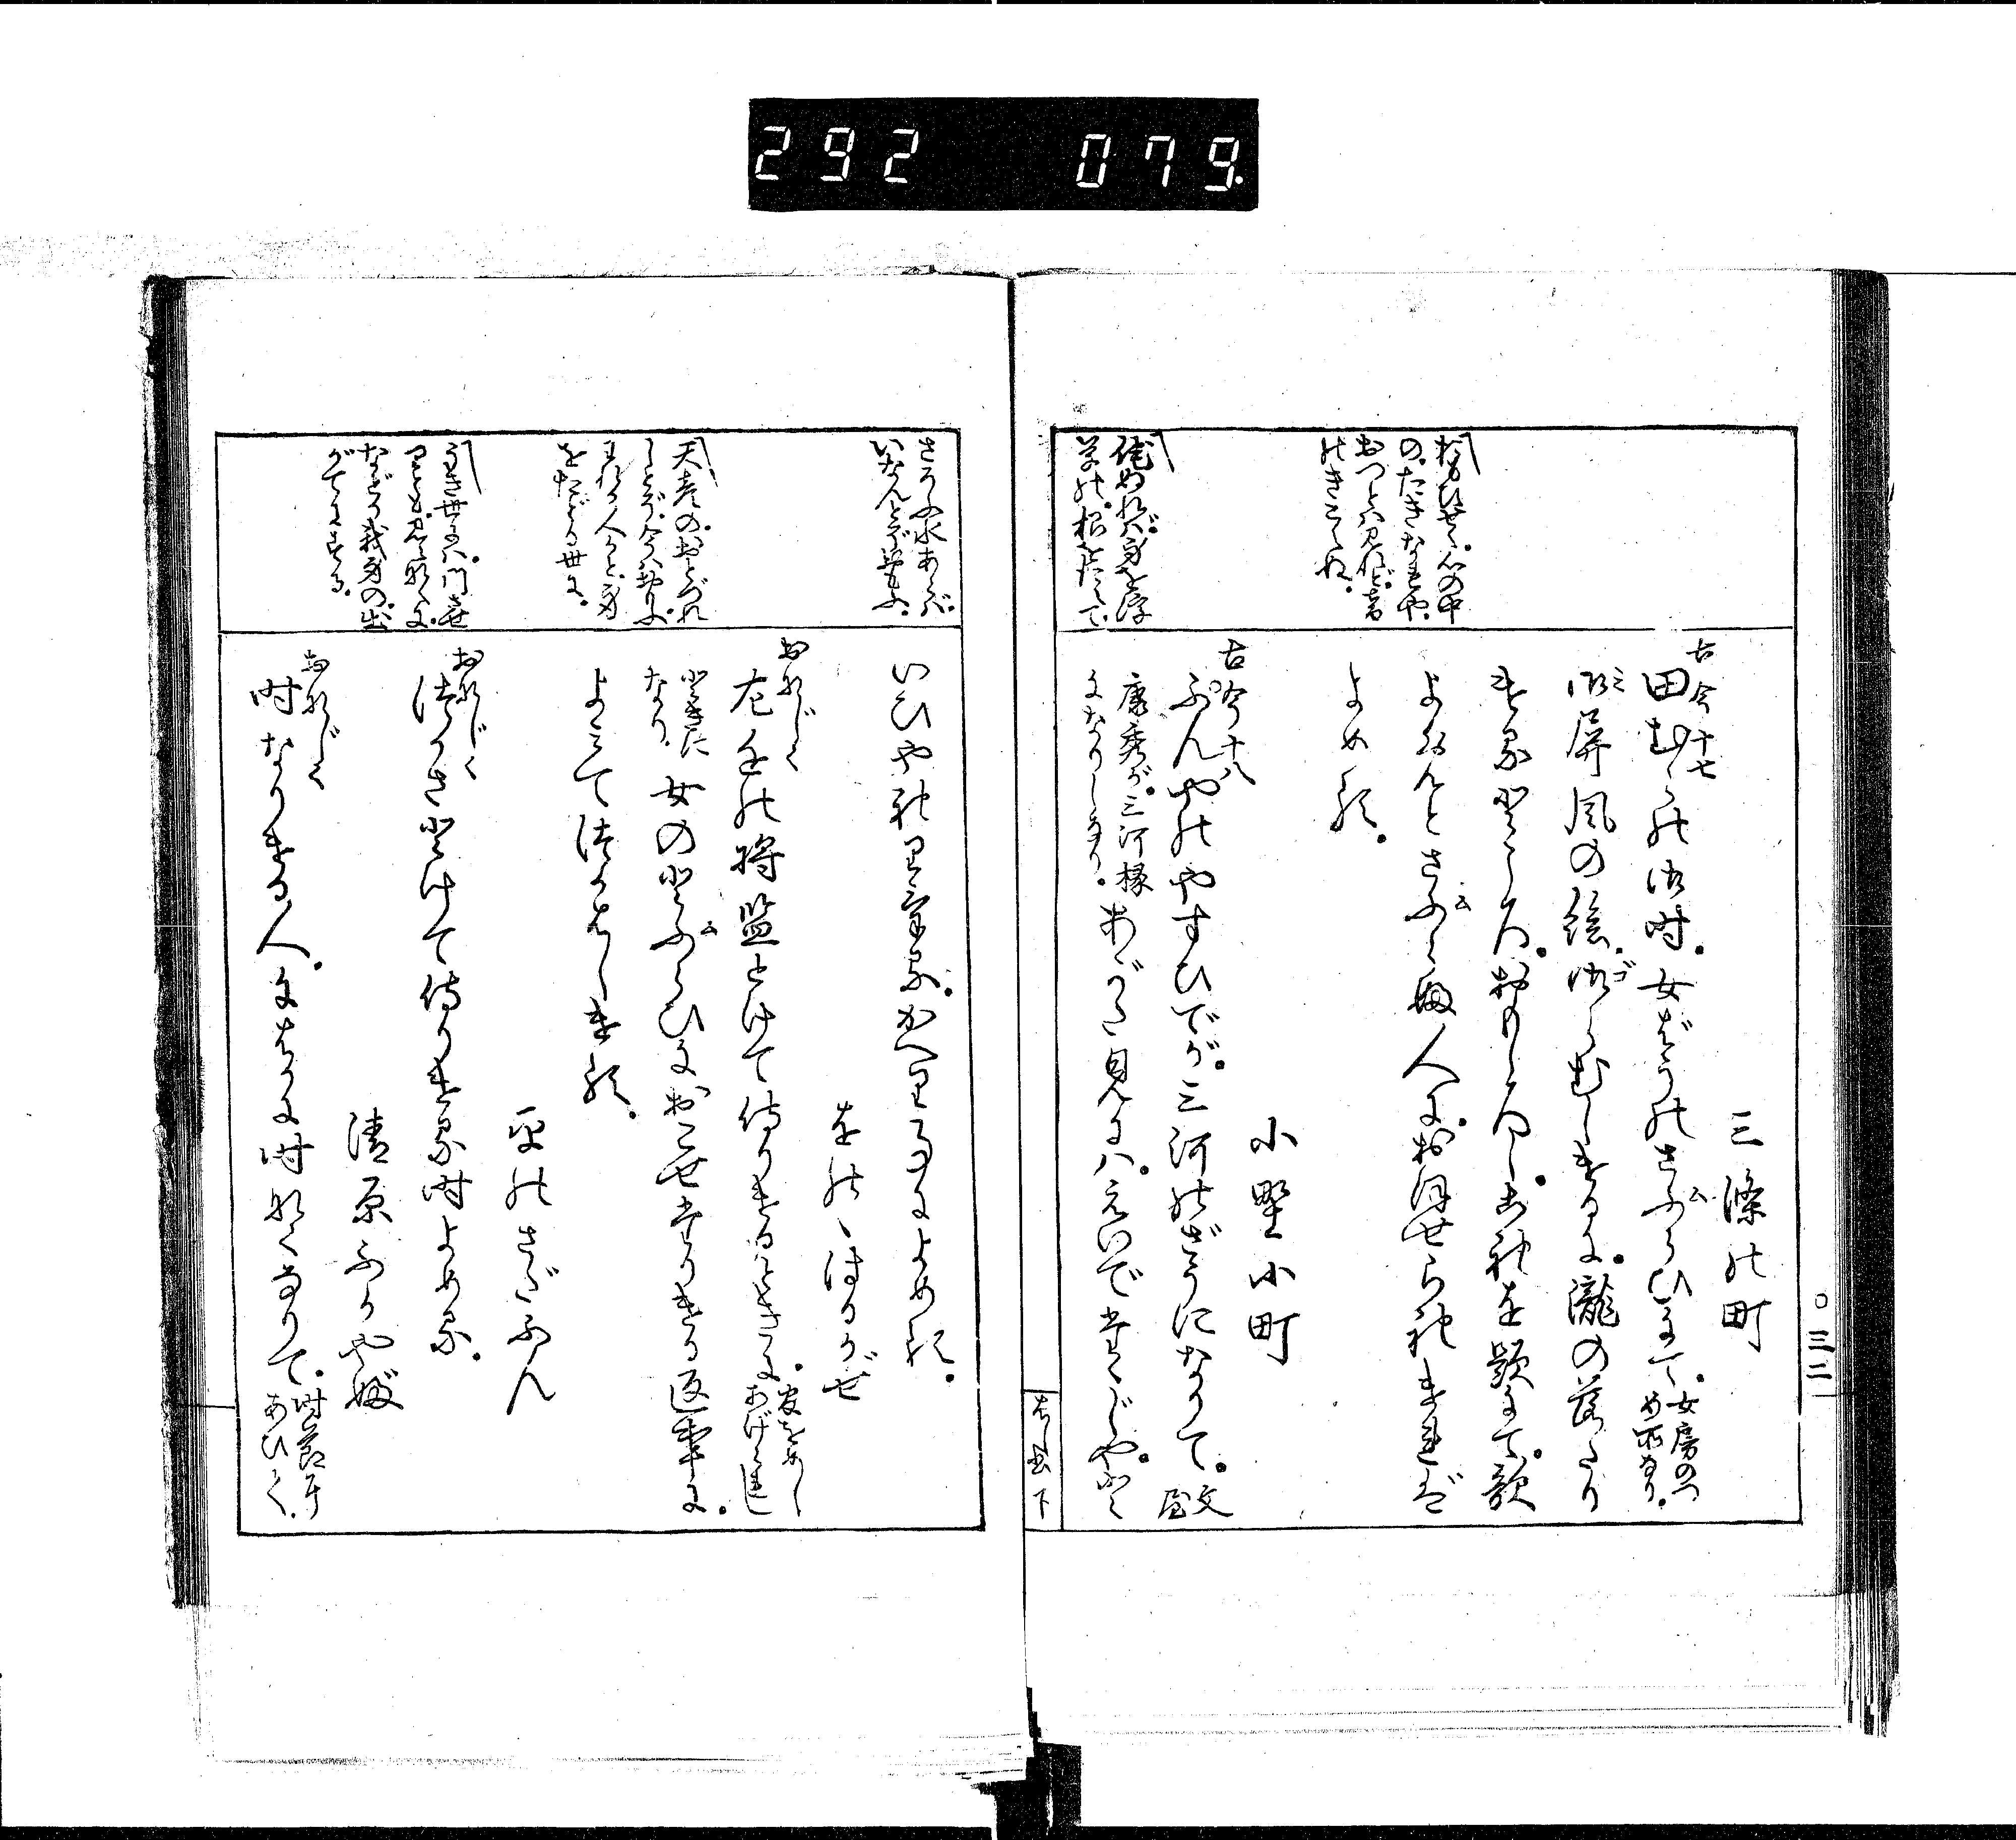 292 079.
〇三二
三條の町
古今十七
田むらの御時。女ばうのさふらひにて。女房のつ
め所なり。
御屏風の絵。御らむじけるに。瀧の落たり
ける所。おもしろし。これを題にて。歌
よめとさふらふ人に。おほせられければ
よめる。
おもひせく。心の中
の。たきなれや。
おつとハ見れど。音
のきこえぬ。
小野小町
古今十八
ふんやのやすひでが。三河のぞうになりて。文屋
康秀が。三河掾
になりしなり。あがた見にハ。えいでたゝじやと
侘ぬれバ。身を浮
草の。根をたえて。
はし書 下
さそふ水あらバ。
いなんとぞ思ふ。
いひやれりける。かへりごとによめる。
をのゝはるかぜ
おなじく
左近将監とけて侍りけるときに。官をめし
あげられし
ときに
なり 女のとふらひにおこせたりける返事に。
よみてつかはしける。
天彦の。おとづれ
じとぞ。今ハおもふ。
われか人かと。身
をたどる世に。
平のさだふん
おなじく
つかさとけて侍りける時よめる。
うき世にハ。門させ
りとも。見えなくに。
などか我身の。出
がてにする。
清原ふかやぶ
おなじく
時なりける人。にはかに時なくなりて。